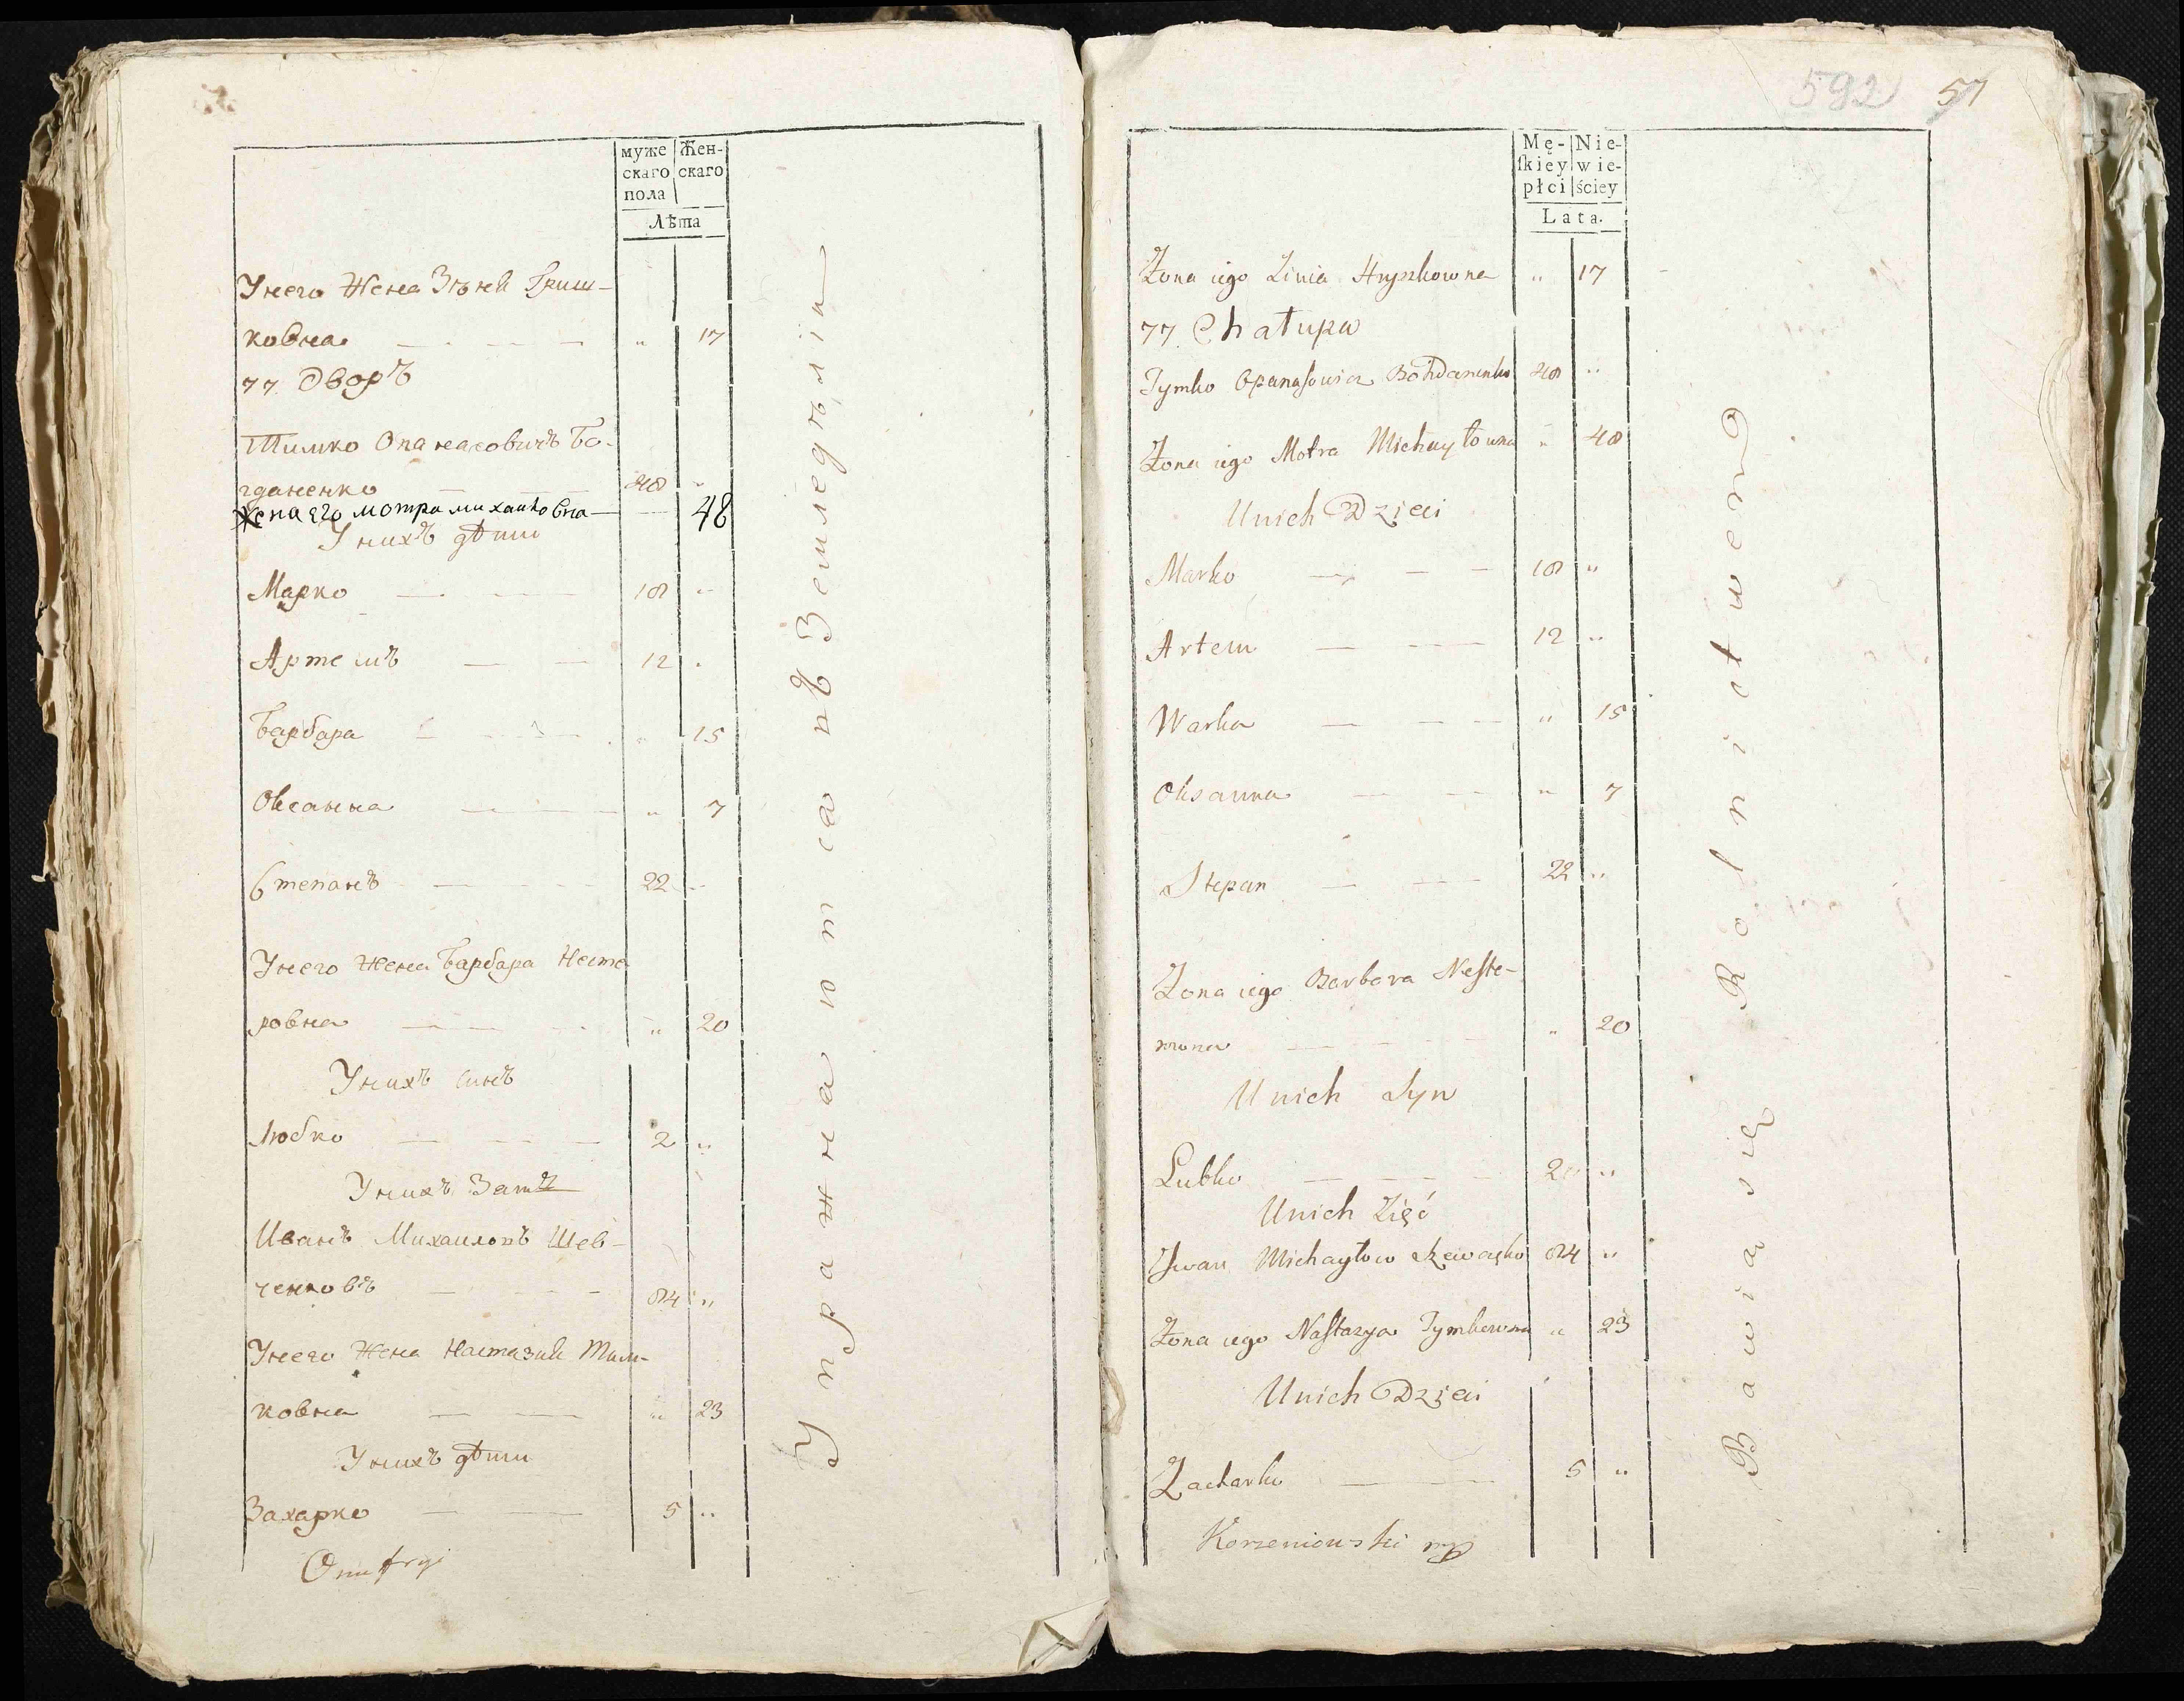 муже
скаго
пола
Жен-
скаго
Лѣта
Унего Жена Зѣнѣй Гриш-
ковна — — — „ 17
77 Дворъ
Тимко Опанасовичъ Бо-
гданенко 48 „
Жена его мотра михайловна — 48
Унихъ дѣти
Марко — — 18 „
Артемъ — — 12 „
Варвара — — „ 15
Оксанна — — „ 7
Степанъ — — 22 „
Унего Жена Варвара Несте
ровна — — „ 20
Унихъ синъ
Любко — — — 2 „
Унихъ Зать
Иванъ Михаиловъ Шев-
ченковъ — — 24 „
Унего Жена Настазия Тим-
ковна — — „ 23
Унихъ дѣти
Захарко — — 5 „
Onufryi
Упражнаются въ Земледѣлїи
592 57
Mę-
ſkiey
płci
Nie-
wie-
ściey
Lata.
Żona iego Zinia Hryszkowna „ 17
77. Chałupa
Tymko Opanaſowicz Bohdanenko 48 „
Żona iego Motra Michayłowna „ 48
Unich Dzieci
Marko — — — 18 „
Artem — — 12 „
Warka — — — „ 15
Oksanna — — „ 7
Stepan — — 22 „
Żona iego Barbara Neſte-
rowna — — „ 20
Unich Syn
Lubko — — — — 2 „
Unich Zięć
Jwan Michayłow Szewczenko 24 „
Żona iego Naſtazya Tymkowna „ 23
Unich Dzieci
Zacharko — — 5 „
Korzeniowski mp
Bawią się Rolnictwem